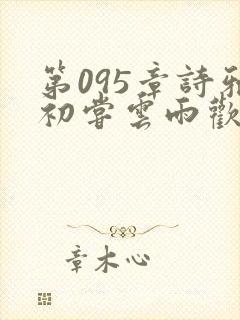 第095章詩雅
初嘗雲雨歡
章木心